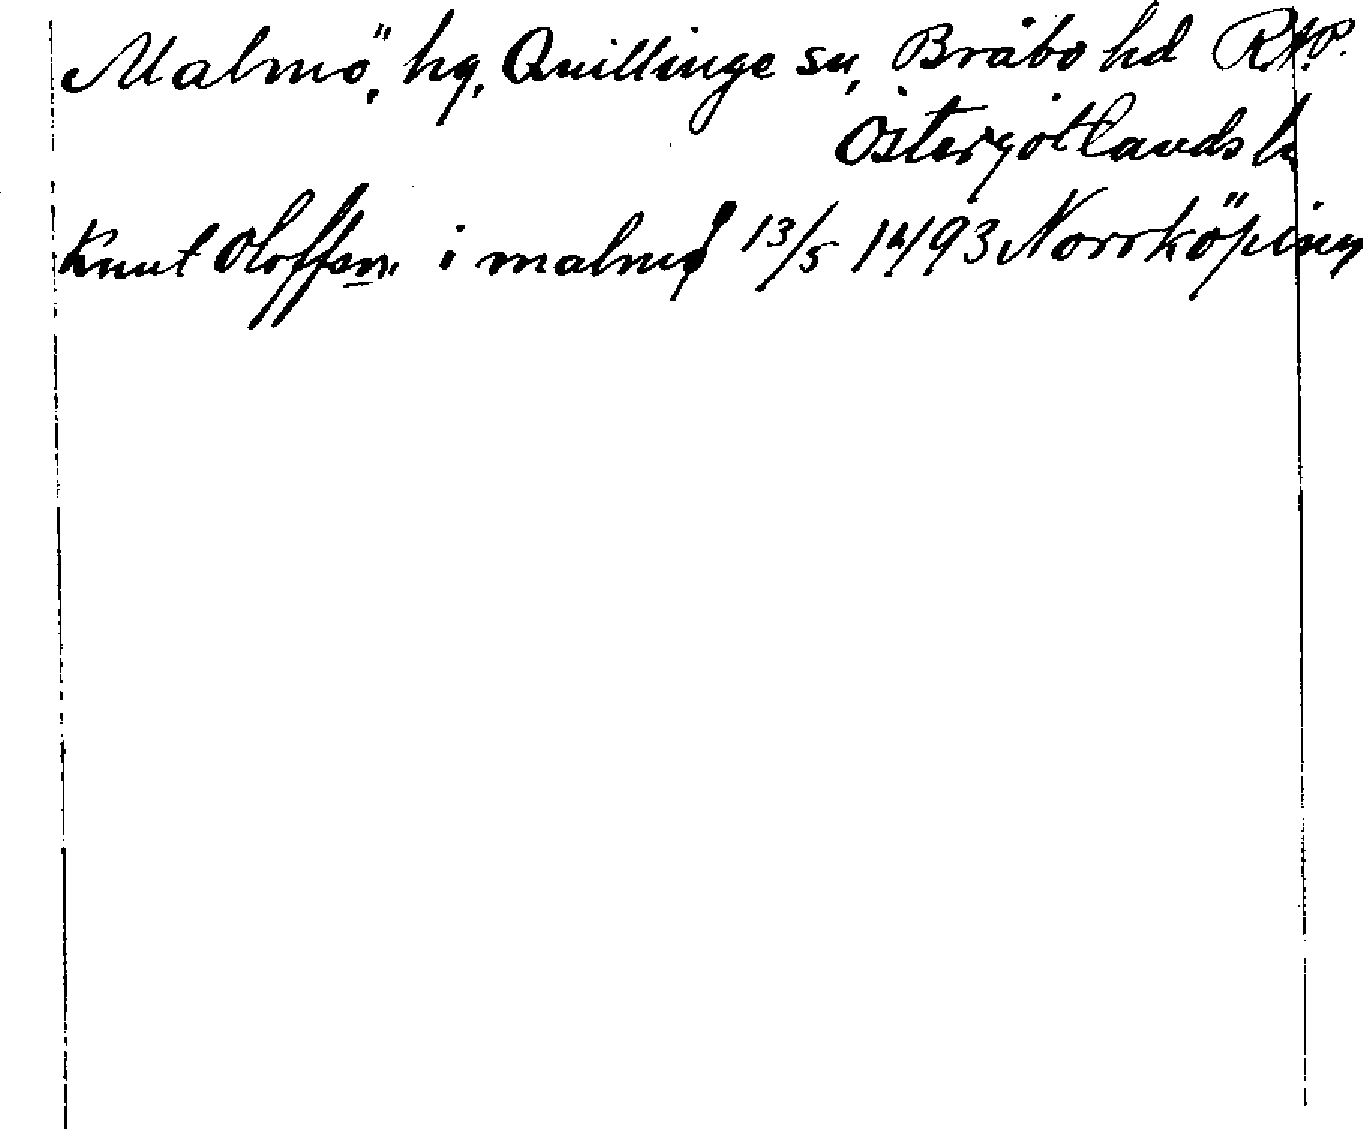 Malmö, hg, Quillinge sn, Bråbo hd RAP.
Östergötlands l.
Knut Oloffsn i malmø 13/5 1493 Norrköping